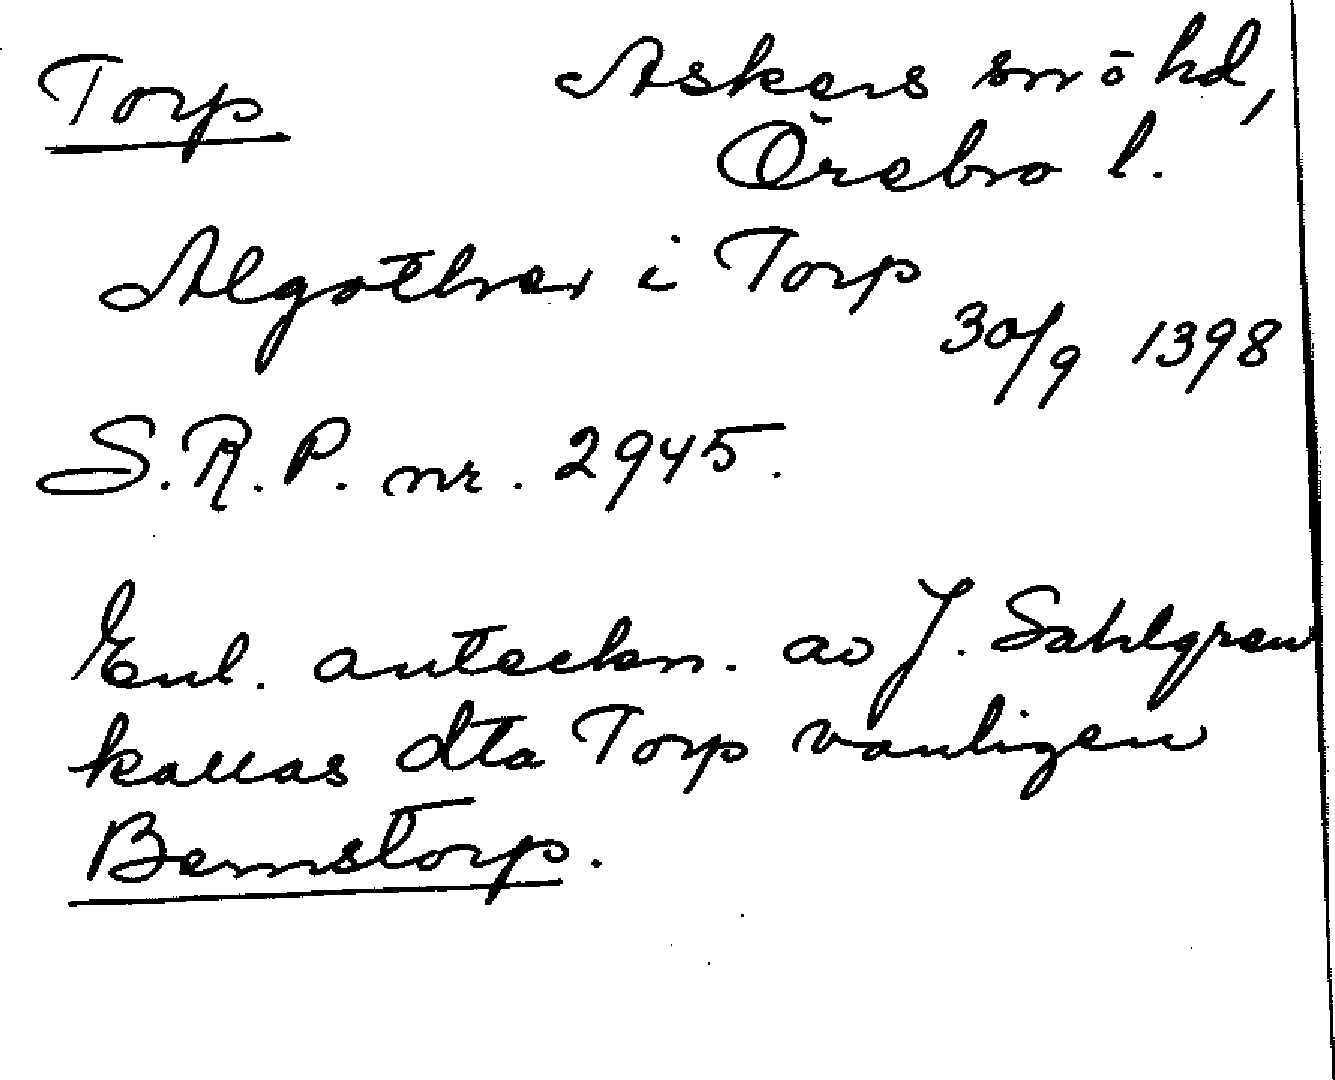 Torp Askers sn o hd,
Örebro l.
Algother i Torp
30/9 1398
S.R.P. nr. 2945.
Enl. anteckn. av J. Sahlgren
kallas dta Torp vanligen
Bernstorp.